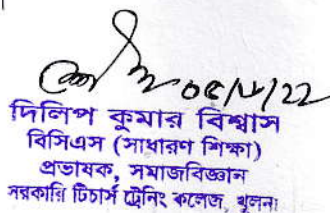 ০৫/৮/22
দিলিপ কুমার বিশ্বাস
বিসিএস (সাধারণ শিক্ষা)
প্রভাষক, সমাজবিজ্ঞান
সরকারি টিচার্স ট্রেনিং কলেজ, খুলনা